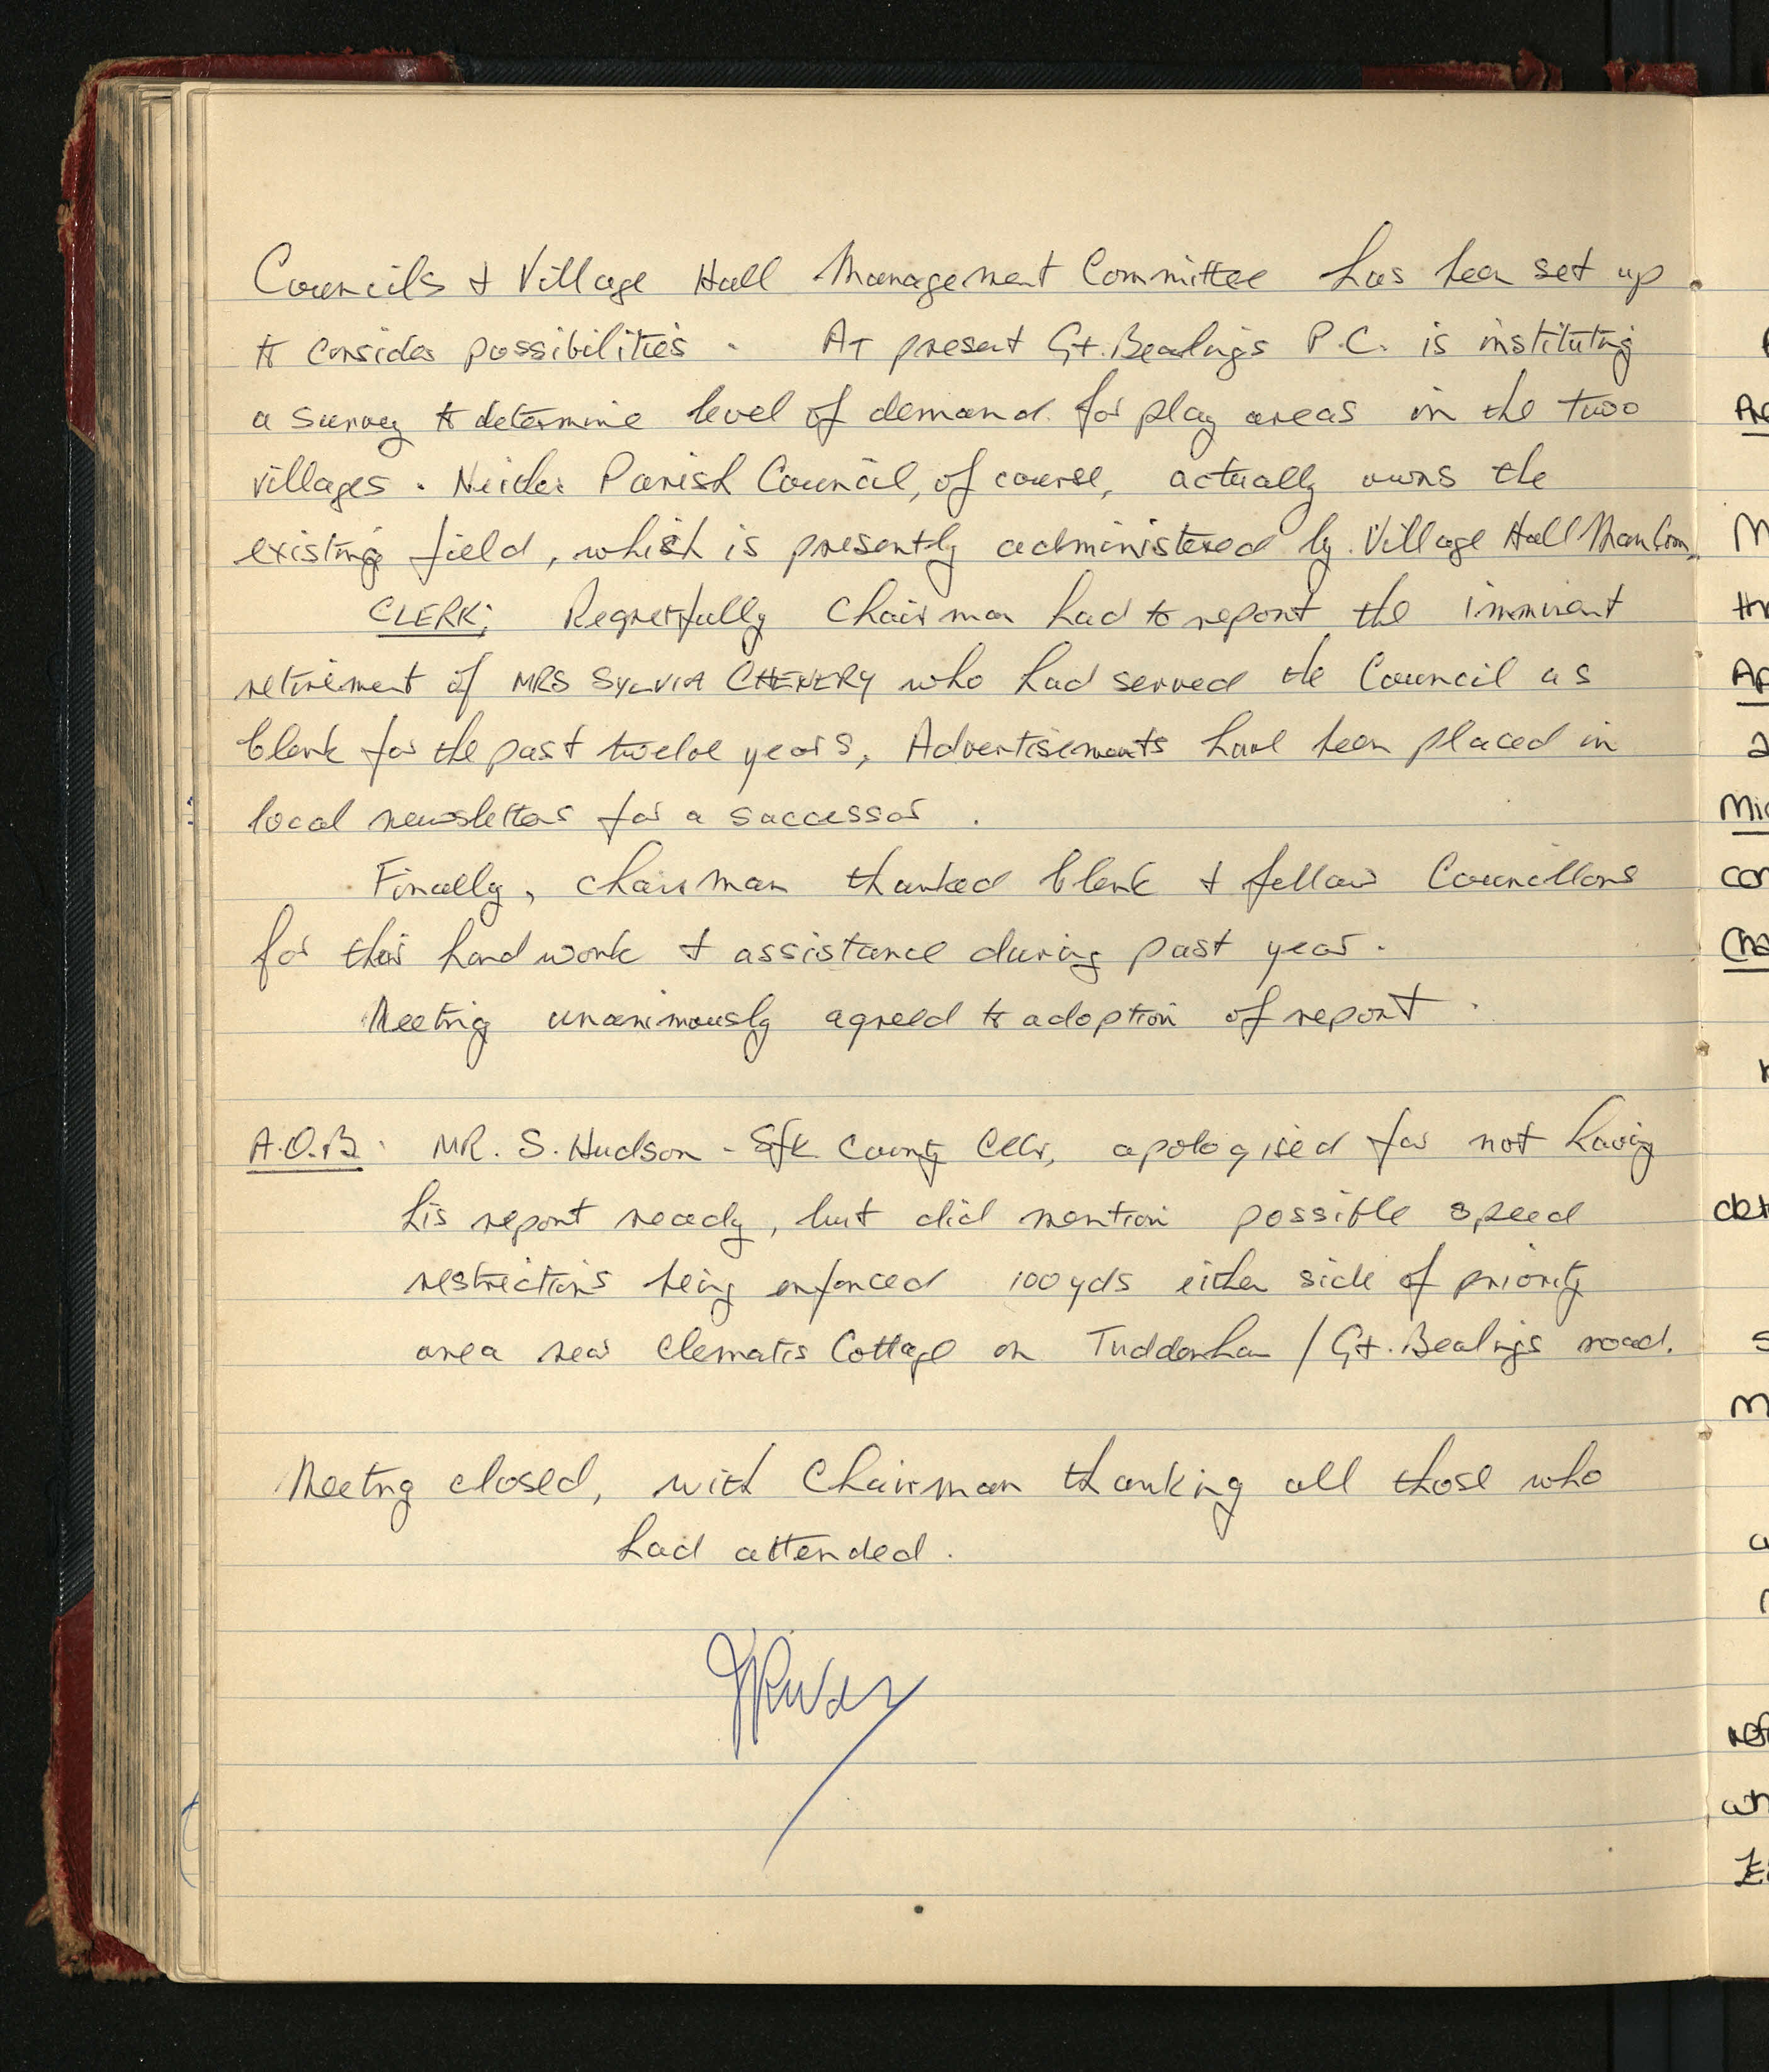 Councils & Village Hall Management Committee has been set up
to consider possibilities. At present Gt. Bealings P.C. is instituting
a survey to determine level of demand for play areas in the two
villages. Neither Parish Council, of course, actually owns the
existing field, which is presently administered by Village Hall Man Com.
CLERK; Regretfully Chairman had to report the imminent
retirement of MRS SYLVIA CHENERY who had served the Council as
Clerk for the past twelve years, Advertisements have been placed in
local newsletters for a successor.
Finally, chairman thanked Clerk & fellow Councillors
for their hard work & assistance during past year.
Meeting unanimously agreed to adoption of report.
A.O.B. MR. S. Hudson - Sfk County Cllr, apologised for not having
his report ready, but did mention possible speed
restrictions being enforced 100 yds either side of priority
area near Clematis Cottage on Tuddenham / Gt. Bealings road.
Meeting closed, with Chairman thanking all those who
had attended.